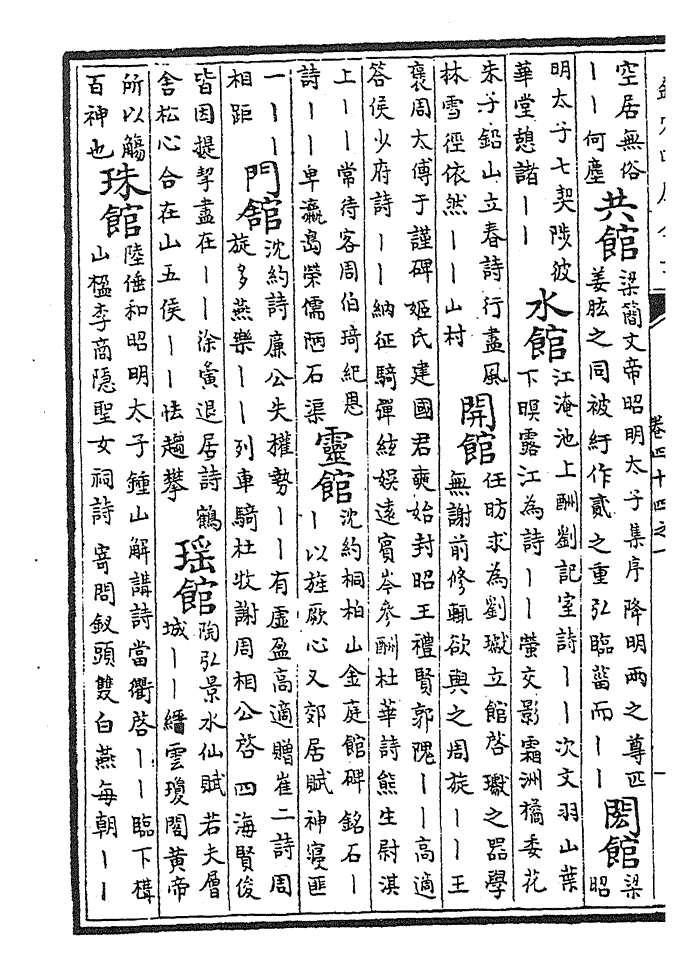 卷四十四之一
空居無俗
丨丨何塵
共館
梁簡文帝昭明太子集序降明兩之尊匹
姜肱之同被紆作貳之重弘臨蓄而丨丨
閎館
梁
昭
明太子七契陟彼
華堂憩諸丨丨
水館
江淹池上酬劉記室詩丨丨次文羽山葉
下暝露江為詩丨丨螢交影霜洲橘委花
朱子鉛山立春詩行盡風
林雪徑依然丨丨山村
開館
任昉求為劉瓛立館啓瓛之器學
無謝前修輒欲與之周旋丨丨王
褒周太傅于謹碑姬氏建國君奭始封昭王禮賢郭隗丨丨高適
答侯少府詩丨丨納征騎彈絃娛遠賓岑參酬杜華詩熊生尉淇
上丨丨常待客周伯琦紀恩
詩丨丨卑瀛島榮儒陋石渠
靈館
沈約桐柏山金庭館碑銘石丨
丨以旌厥心又郊居賦神寢匪
一丨丨
相距
門館
沈約詩廉公失權勢丨丨有虛盈高適贈崔二詩周
旋多燕樂丨丨列車騎杜牧謝周相公啓四海賢俊
皆因提挈盡在丨丨徐夤退居詩鶴
舍松心合在山五侯丨丨怯趨攀
瑶館
陶弘景水仙賦若夫層
城丨丨縉雲瓊閣黃帝
所以觴
百神也
珠館
陸倕和昭明太子鍾山解講詩當衢啓丨丨臨下構
山楹李商隱聖女祠詩寄問釵頭雙白燕每朝丨丨